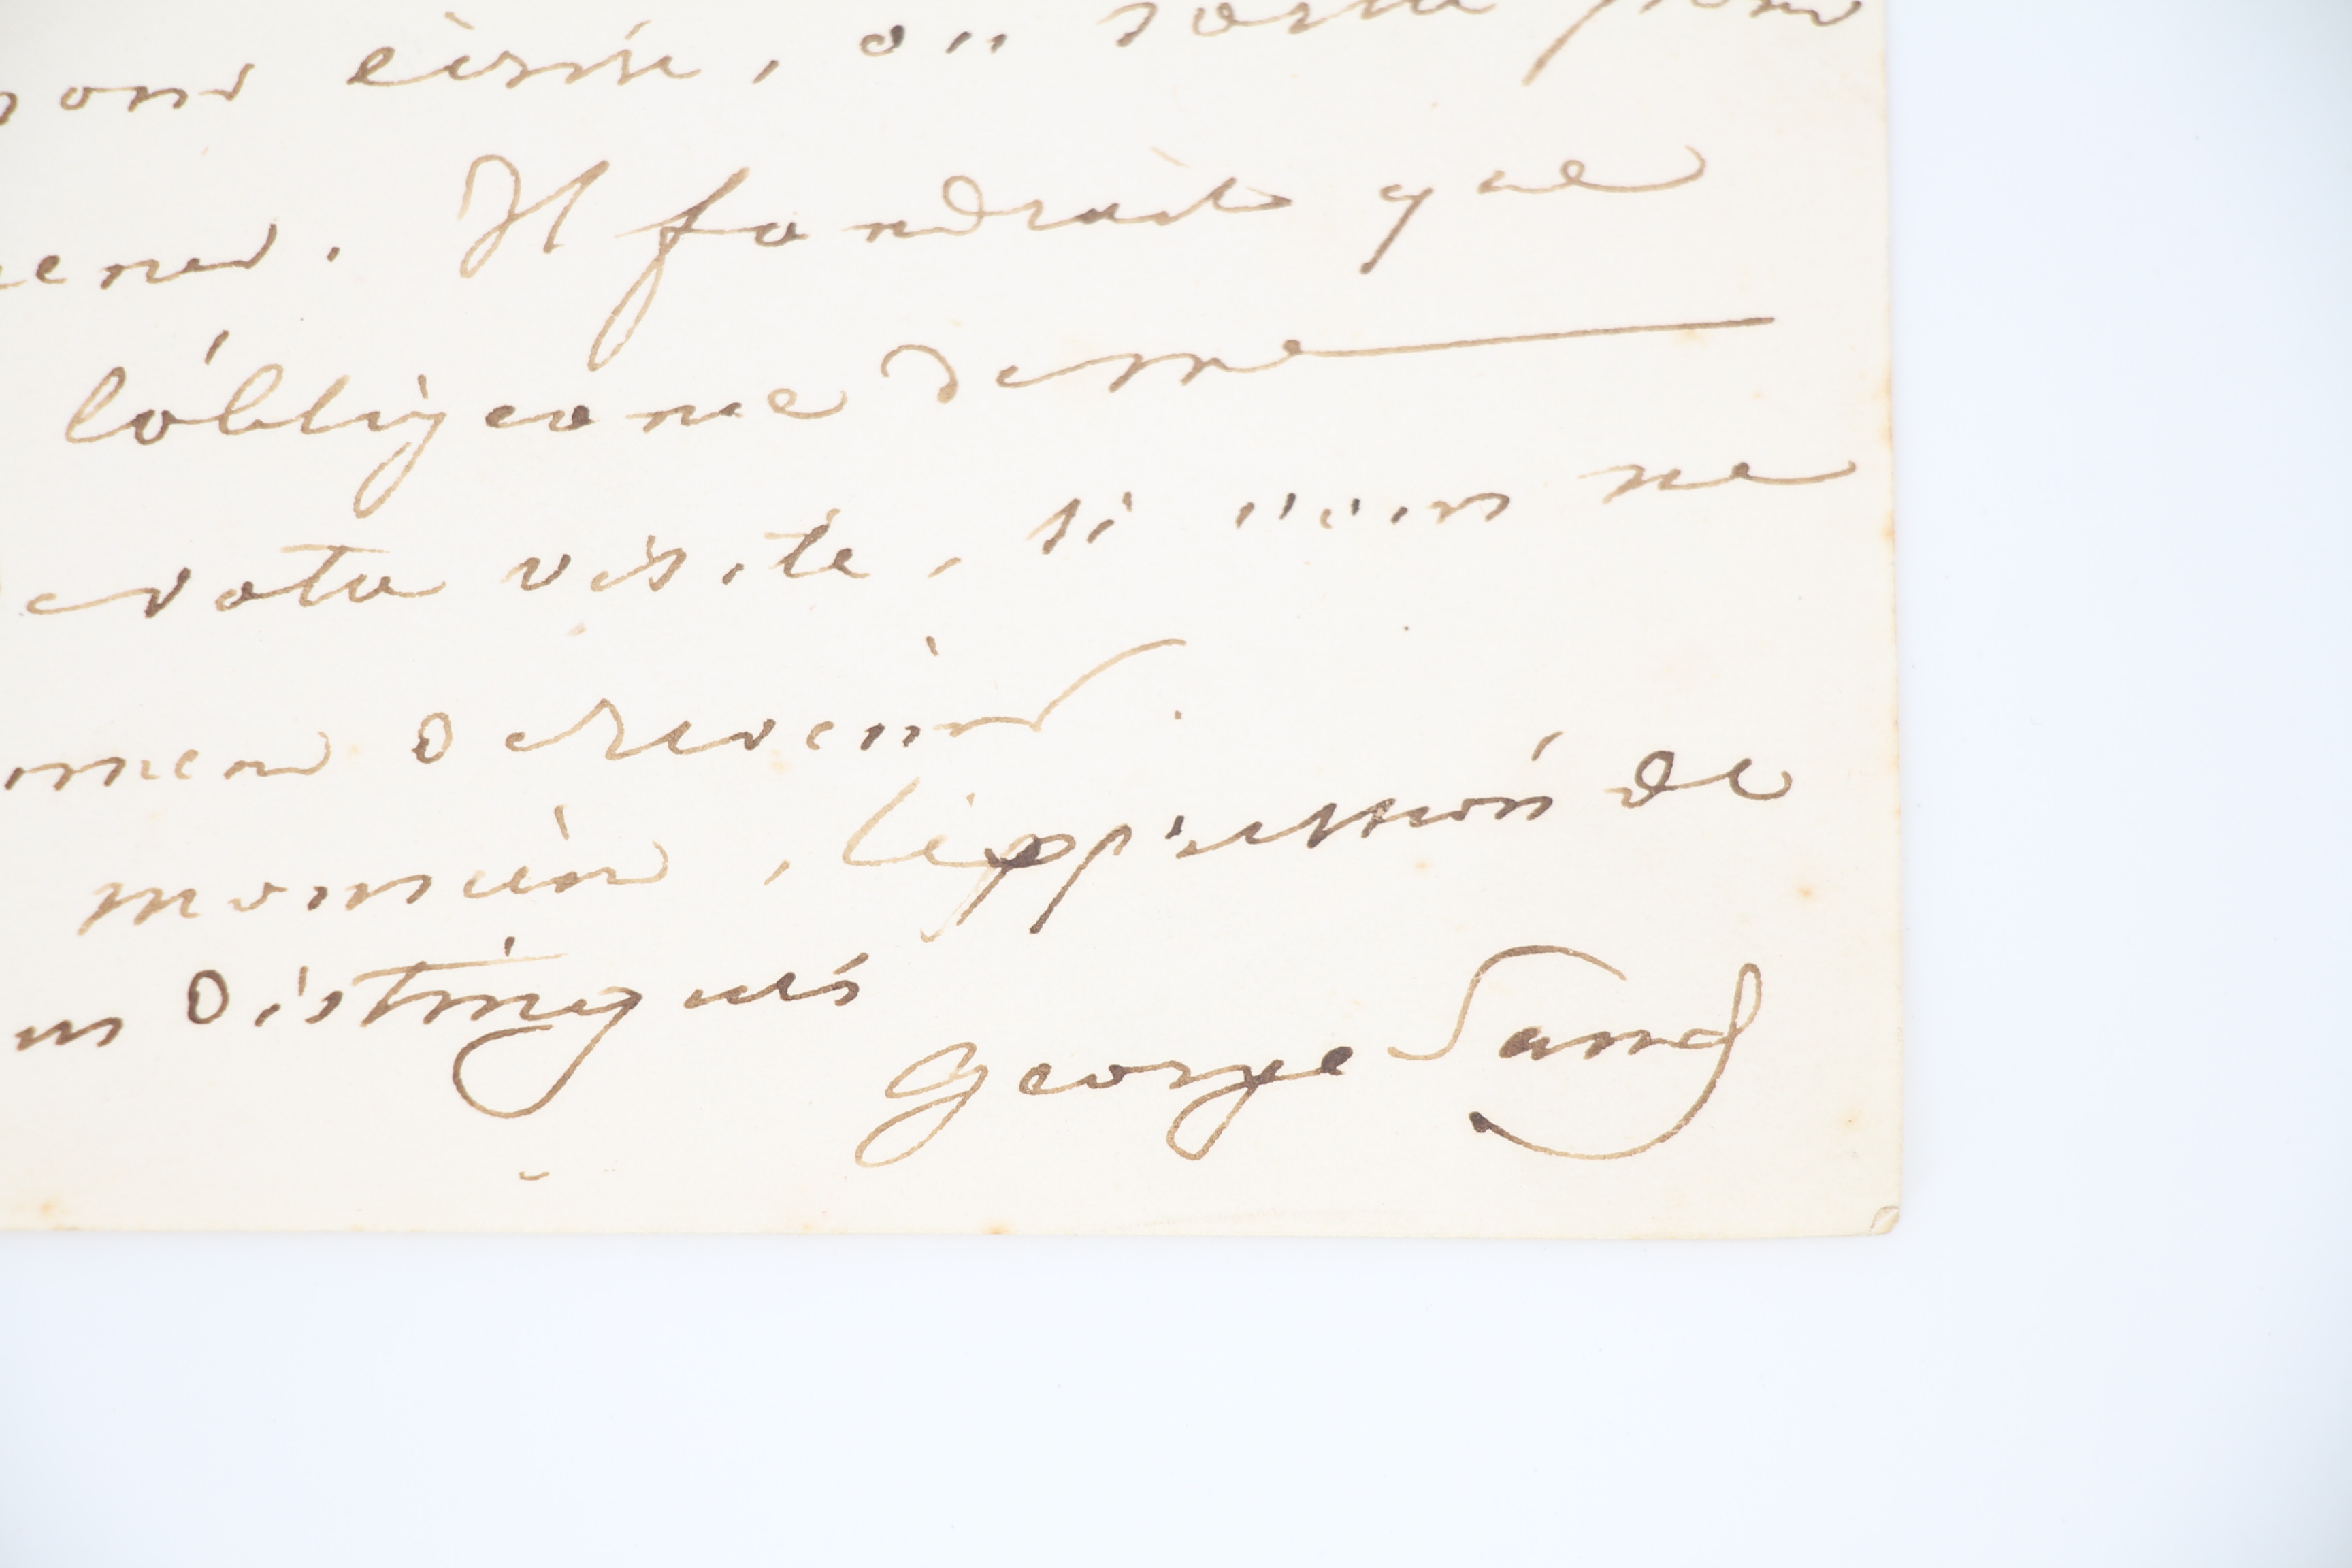 sont écrire, ou sortie pour
. Il faudrait que
l'obligeance de me
votre visite, si vous ne
de revenir.
monsieur, l'expression de
distingués
George Sand